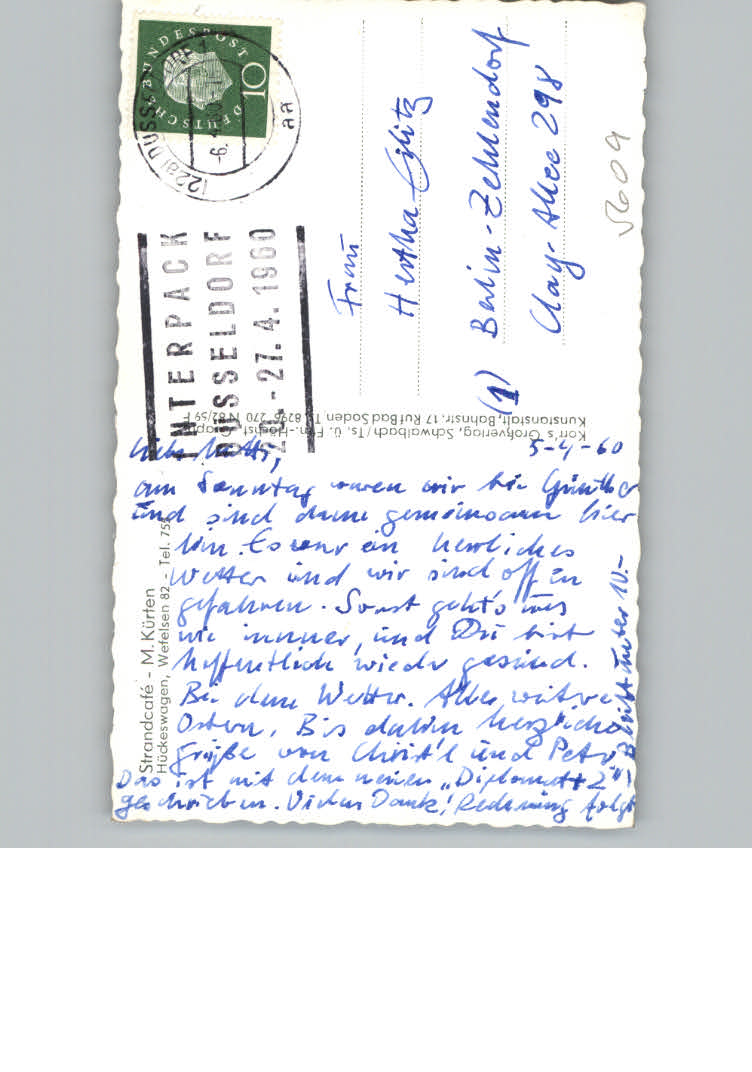 DEUTSCHE BUNDESPOST
10
(22a) DÜSSELDORF 1
-6.4.60
aa
INTERPACK
DÜSSELDORF
-27.4.1960
Frau
Hertha
(1) Berlin-Zehlendorf
Clay-Allee 298
5609
Korr's Großverlag, Schwalbach/Ts. ü. Ffm.-Höchst
Kunstanstalt, Bahnstr. 17 Ruf Bad Soden
Strandcafé - M. Kürten
Hückeswagen, Wefelsen 82 - Tel. 755
5-4-60
Liebe Mutti,
am Sonntag waren wir bei Günther
und sind dann gemeinsam hier
hin. Es war ein herrliches
Wetter und wir sind offen
gefahren. Sonst geht's uns
wie immer, und Du bist
hoffentlich wieder gesund.
Bei dem Wetter. Alles weitere
Ostern. Bis dahin herzliche
Grüße von Christ'l und Peter
Das ist mit dem neuen „Diplomat 2"
geschrieben. Vielen Dank! Rechnung folgt
bleibt unter 10.-